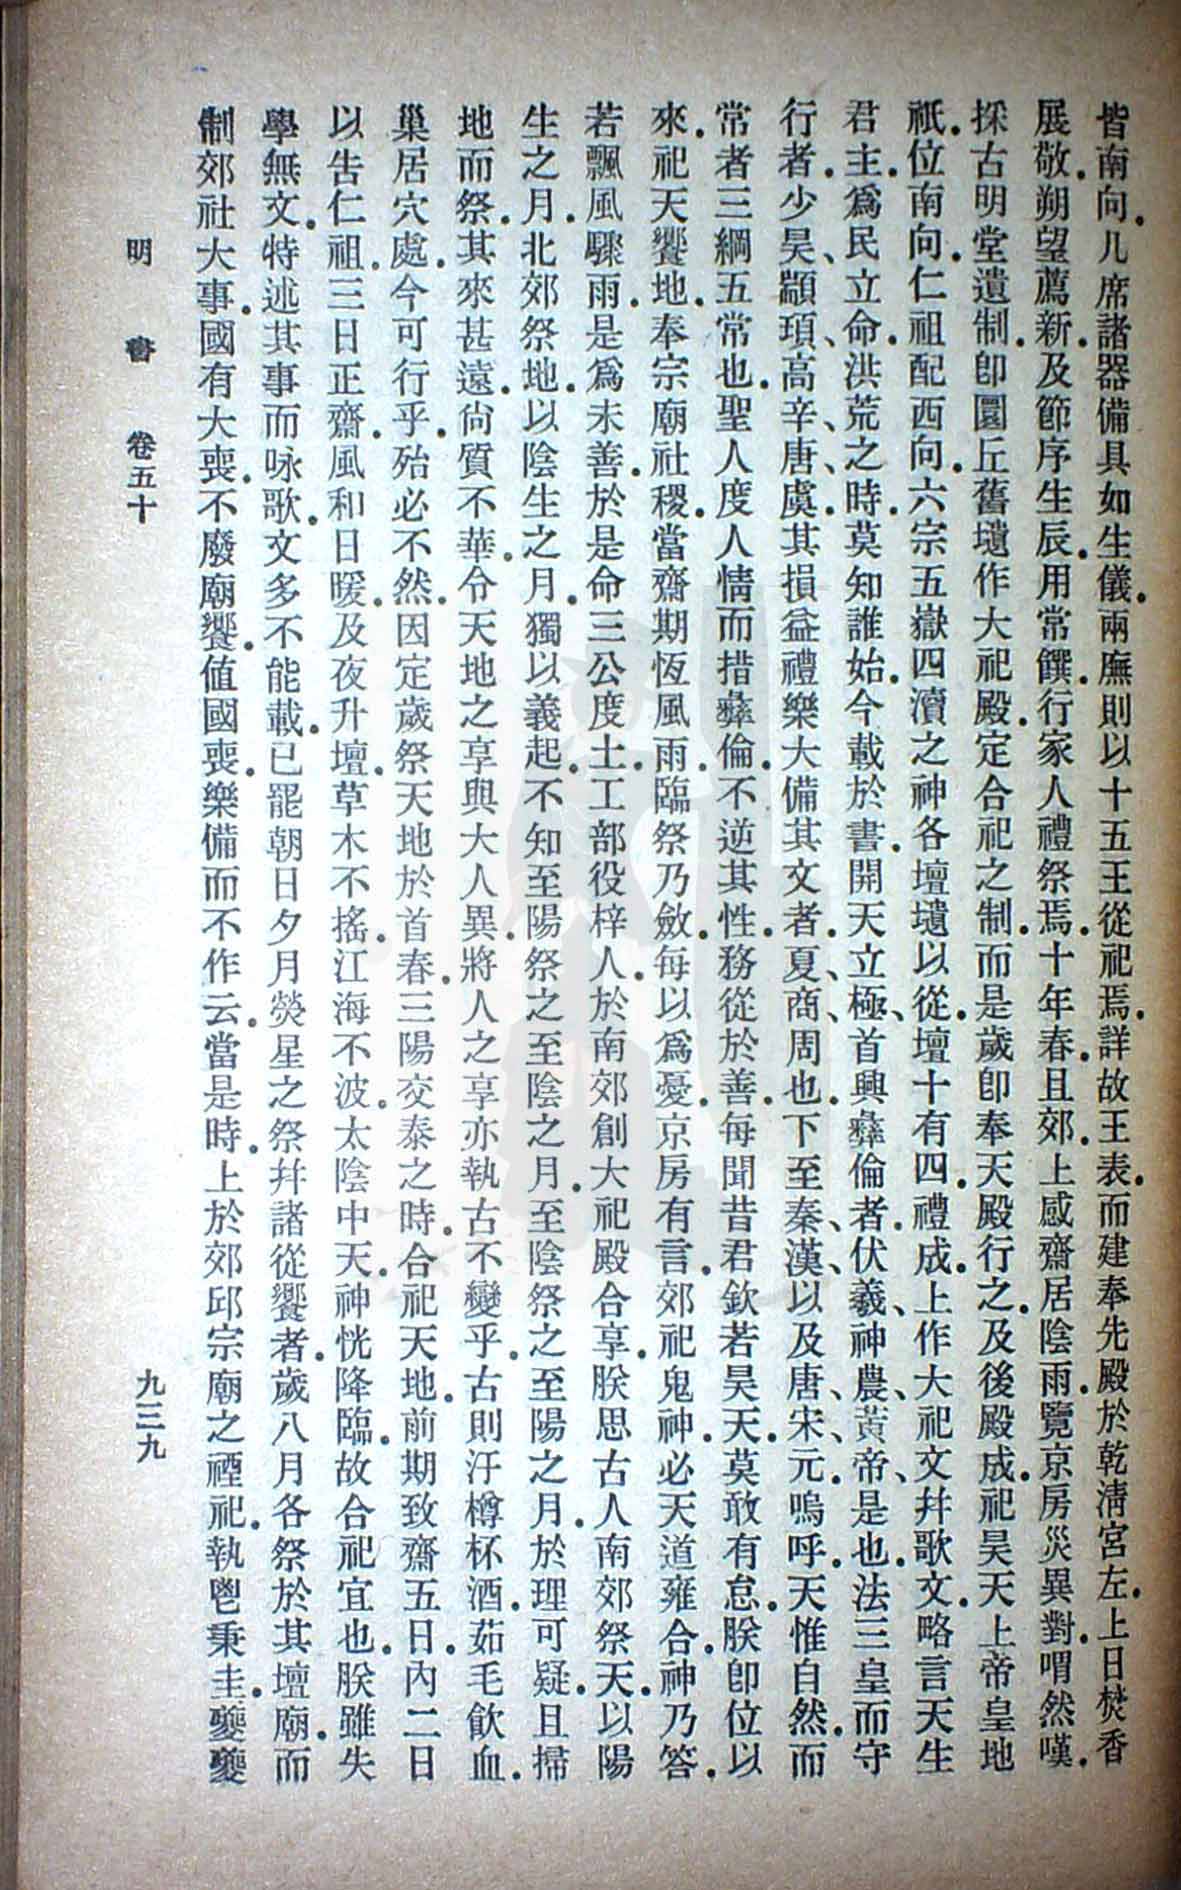 皆南向。几席諸器備具如生儀。兩廡則以十五王從祀焉。詳故王表。而建奉先殿於乾淸宮左。上日焚香
展敬。朔望薦新。及節序生辰。用常饌。行家人禮祭焉。十年春。且郊。上感齋居陰雨。覽京房災異對。喟然嘆。
採古明堂遺制。卽圜丘舊壝作大祀殿。定合祀之制。而是歲卽奉天殿行之。及後殿成。祀昊天上帝皇地
祇。位南向。仁祖配西向。六宗五嶽四瀆之神各壇壝以從。壇十有四。禮成。上作大祀文幷歌文。略言天生
君主。爲民立命。洪荒之時。莫知誰始。今載於書。開天立極、首興彝倫者。伏羲、神農、黃帝、是也。法三皇而守
行者。少昊、顓頊、高辛、唐、虞。其損益禮樂大備其文者。夏、商、周也。下至秦、漢、以及唐、宋、元。嗚呼。天惟自然。而
常者三綱五常也。聖人度人情而措彝倫。不逆其性。務從於善。每聞昔君欽若昊天。莫敢有怠。朕卽位以
來。祀天饗地。奉宗廟社稷。當齋期恆風雨。臨祭乃斂。每以爲憂。京房有言。郊祀鬼神。必天道雍合。神乃答。
若飄風驟雨。是爲未善。於是命三公度土。工部役梓人。於南郊創大祀殿合享。朕思古人南郊祭天。以陽
生之月。北郊祭地。以陰生之月。獨以義起。不知至陽祭之至陰之月。至陰祭之至陽之月。於理可疑。且掃
地而祭。其來甚遠。尙質不華。令天地之享與大人異。將人之享亦執古不變乎。古則汙樽杯酒。茹毛飮血。
巢居穴處。今可行乎。殆必不然。因定歲祭天地於首春。三陽交泰之時。合祀天地。前期致齋五日。內二日
以告仁祖。三日正齋。風和日暖。及夜升壇。草木不搖。江海不波。太陰中天。神恍降臨。故合祀宜也。朕雖失
學無文。特述其事而咏歌。文多不能載。已罷朝日夕月熒星之祭。幷諸從饗者。歲八月各祭於其壇廟。而
制郊社大事。國有大喪。不廢廟饗。値國喪。樂備而不作云。當是時。上於郊邱宗廟之禋祀。執鬯秉圭。夔夔
明書 卷五十
九三九